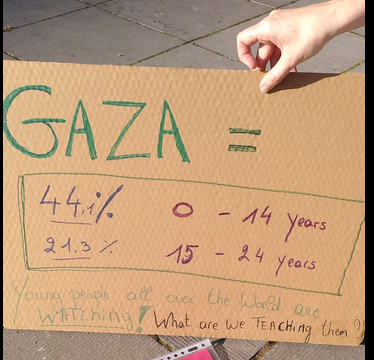 GAZA =
44,1% 0 - 14 years
21.3% 15 - 24 years
Young people all over the World are
WATCHing! What are we TEACHing them?